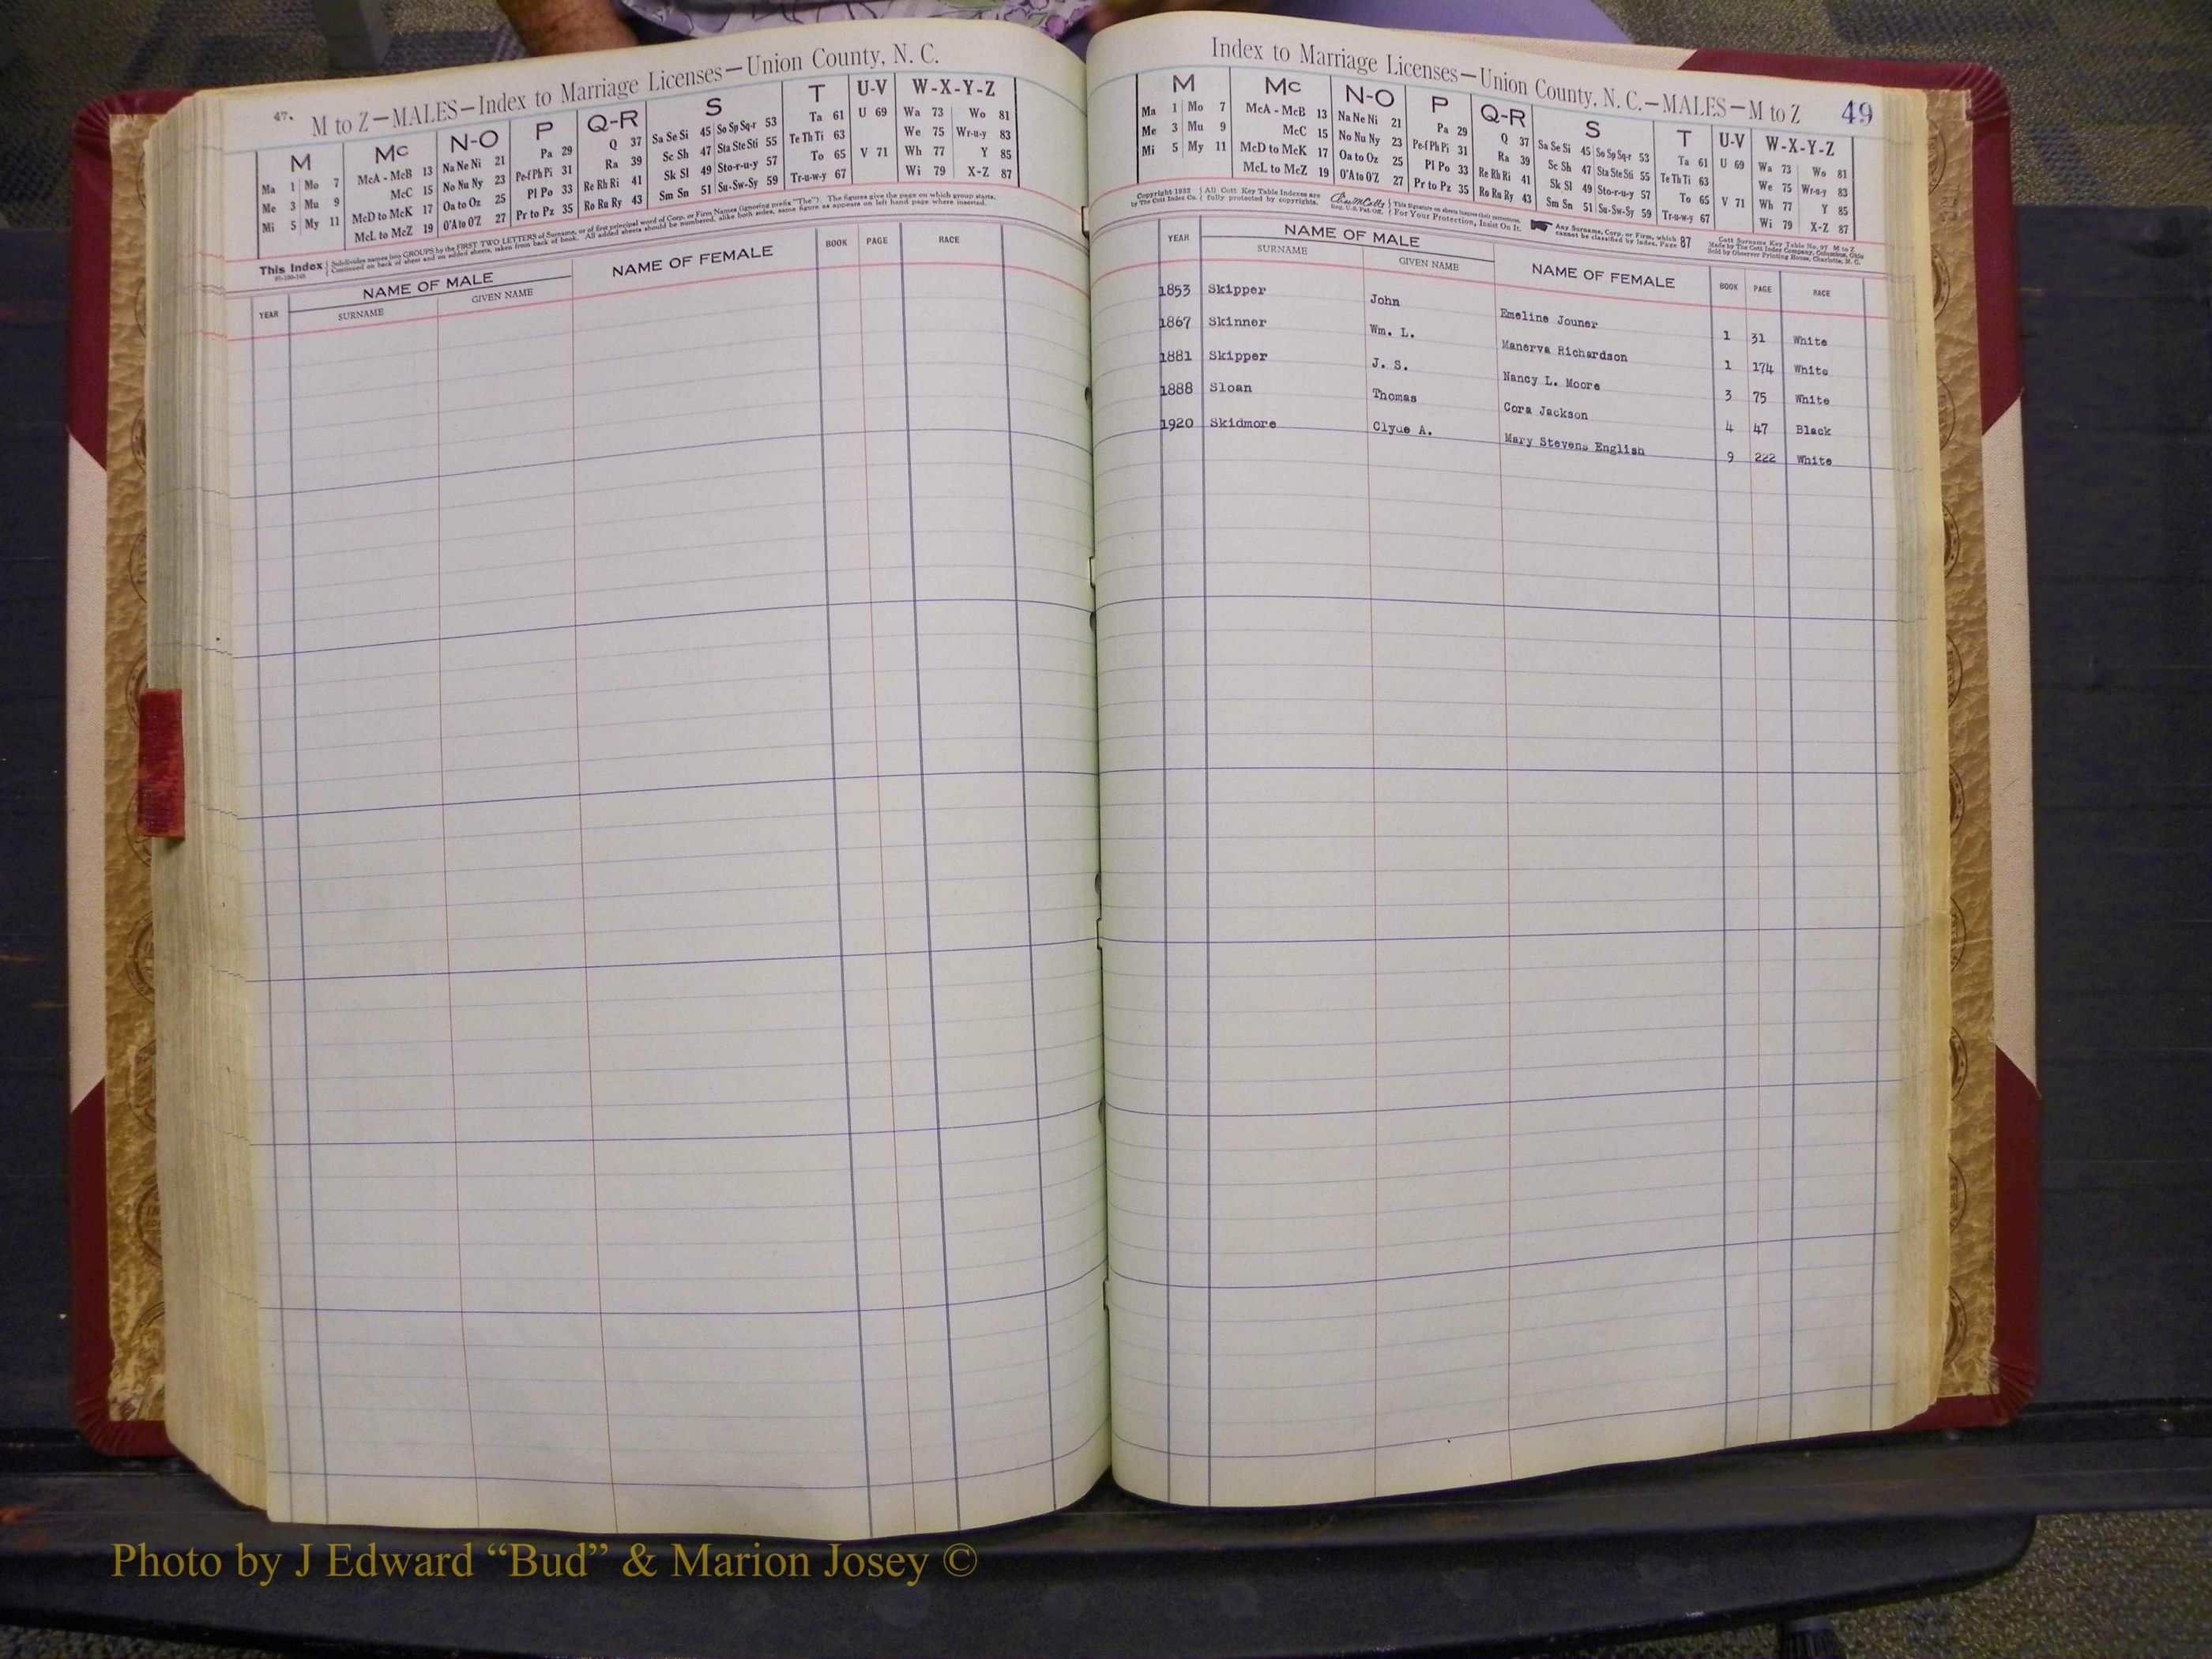 47.
M to Z—MALES—Index to Marriage Licenses—Union County, N. C.
M Mc N-O P Q-R S T U-V W-X-Y-Z
Ma 1 Mo 7 McA - McB 13 Na Ne Ni 21 Pa 29 Q 37 Sa Se Si 45 So Sp Sq-r 53 Ta 61 U 69 Wa 73 Wo 81
Me 3 Mu 9 McC 15 No Nu Ny 23 Pe-f Ph Pi 31 Ra 39 Sc Sh 47 Sta Ste Sti 55 Te Th Ti 63 We 75 Wr-u-y 83
Mi 5 My 11 McD to McK 17 Oa to Oz 25 Pl Po 33 Re Rh Ri 41 Sk Sl 49 Sto-r-u-y 57 To 65 V 71 Wh 77 Y 85
McL to McZ 19 O'A to O'Z 27 Pr to Pz 35 Ro Ru Ry 43 Sm Sn 51 Su-Sw-Sy 59 Tr-u-w-y 67 Wi 79 X-Z 87
This Index Subdivides names into GROUPS by the FIRST TWO LETTERS of Surname, or of first principal word of Corp. or Firm Names (ignoring prefix "The"). The figures give the page on which group starts.
Continued on back of sheet and on added sheets, taken from back of book. All added sheets should be numbered, alike both sides, same figure as appears on left hand page where inserted.
YEAR NAME OF MALE NAME OF FEMALE BOOK PAGE RACE
SURNAME GIVEN NAME
Index to Marriage Licenses—Union County, N. C.—MALES—M to Z 49
M Mc N-O P Q-R S T U-V W-X-Y-Z
Ma 1 Mo 7 McA - McB 13 Na Ne Ni 21 Pa 29 Q 37 Sa Se Si 45 So Sp Sq-r 53 Ta 61 U 69 Wa 73 Wo 81
Me 3 Mu 9 McC 15 No Nu Ny 23 Pe-f Ph Pi 31 Ra 39 Sc Sh 47 Sta Ste Sti 55 Te Th Ti 63 We 75 Wr-u-y 83
Mi 5 My 11 McD to McK 17 Oa to Oz 25 Pl Po 33 Re Rh Ri 41 Sk Sl 49 Sto-r-u-y 57 To 65 V 71 Wh 77 Y 85
McL to McZ 19 O'A to O'Z 27 Pr to Pz 35 Ro Ru Ry 43 Sm Sn 51 Su-Sw-Sy 59 Tr-u-w-y 67 Wi 79 X-Z 87
Copyright 1932 All Cott Key Table Indexes are This Signature on sheets insures their correctness. Any Surname, Corp. or Firm, which
by The Cott Index Co. fully protected by copyrights. Reg. U.S. Pat. Off. For Your Protection, Insist On It. cannot be classified by Index, Page 87
Cott Surname Key Table No. 97 M to Z
Made by The Cott Index Company, Columbus, Ohio
Sold by Observer Printing House, Charlotte, N. C.
YEAR NAME OF MALE NAME OF FEMALE BOOK PAGE RACE
SURNAME GIVEN NAME
1853 Skipper John Emeline Jouner 1 31 White
1867 Skinner Wm. L. Manerva Richardson 1 174 White
1881 Skipper J. S. Nancy L. Moore 3 75 White
1888 Sloan Thomas Cora Jackson 4 47 Black
1920 Skidmore Clyde A. Mary Stevens English 9 222 White
Photo by J Edward “Bud” & Marion Josey ©